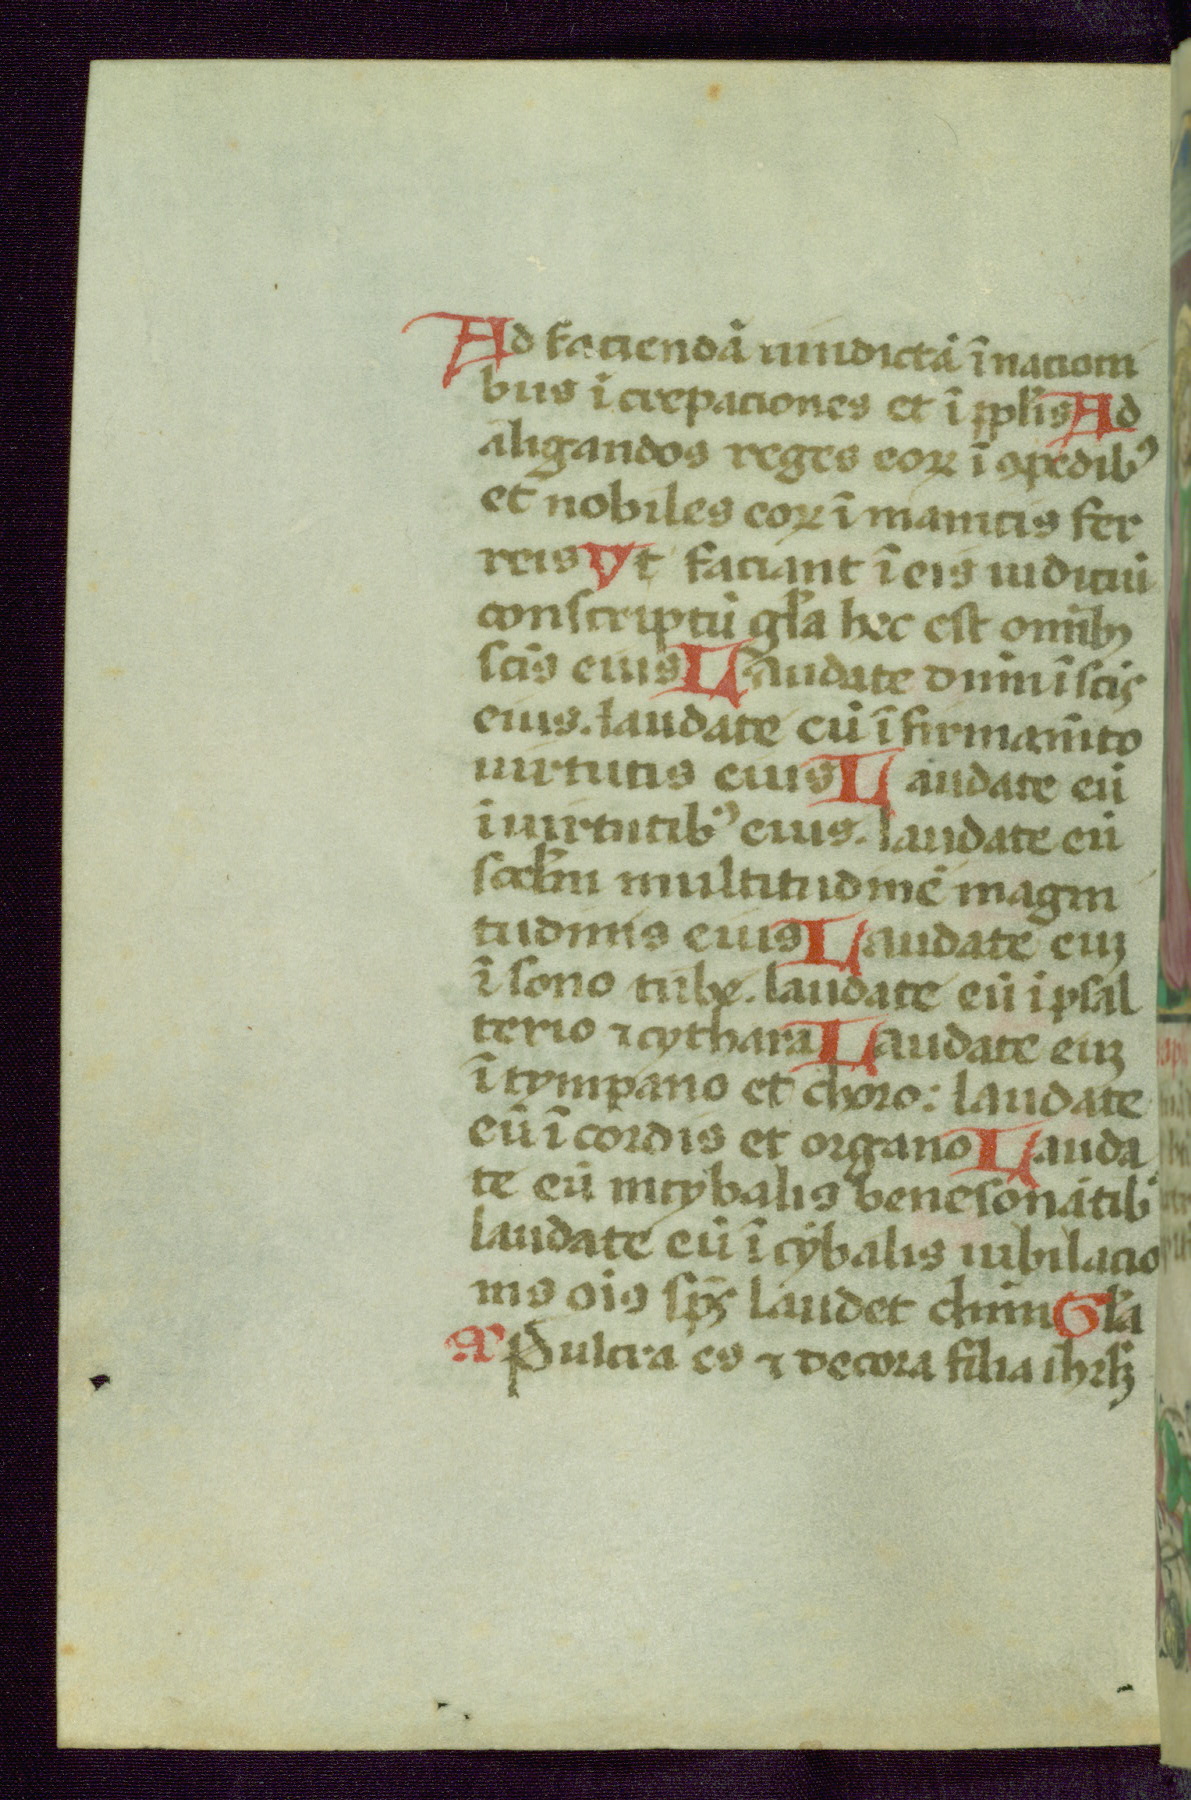 Ad faciendā uindictā ī nacioni
bus ī crepaciones et ī pplis Ad
aligandos reges eoꝝ ī ꝯpedibꝰ
et nobiles eoꝝ ī manicis fer
reis Vt faciant ī eis iudiciū
conscriptū gl̄a hec est om̄ibꝫ
sc̄is eius Laudate dn̄m ī sc̄is
eius. laudate eū ī firmam̄to
uirtutis eius Laudate eū
ī uirtutibꝰ eius. laudate eū
scd̄m multitudinē magni
tudinis eius Laudate euꝫ
ī sono tube. laudate eū ī psal
terio ⁊ cythara Laudate euꝫ
ī tympano et choro: laudate
eū ī cordis et organo Lauda
te eū in cybalis benesonātibꝰ
laudate eū ī cȳbalis iubilacio
nis ois sps̄ laudet dn̄m Gl̄a
Añ Pulcra es ⁊ decora filia ihrl̄ꝫ